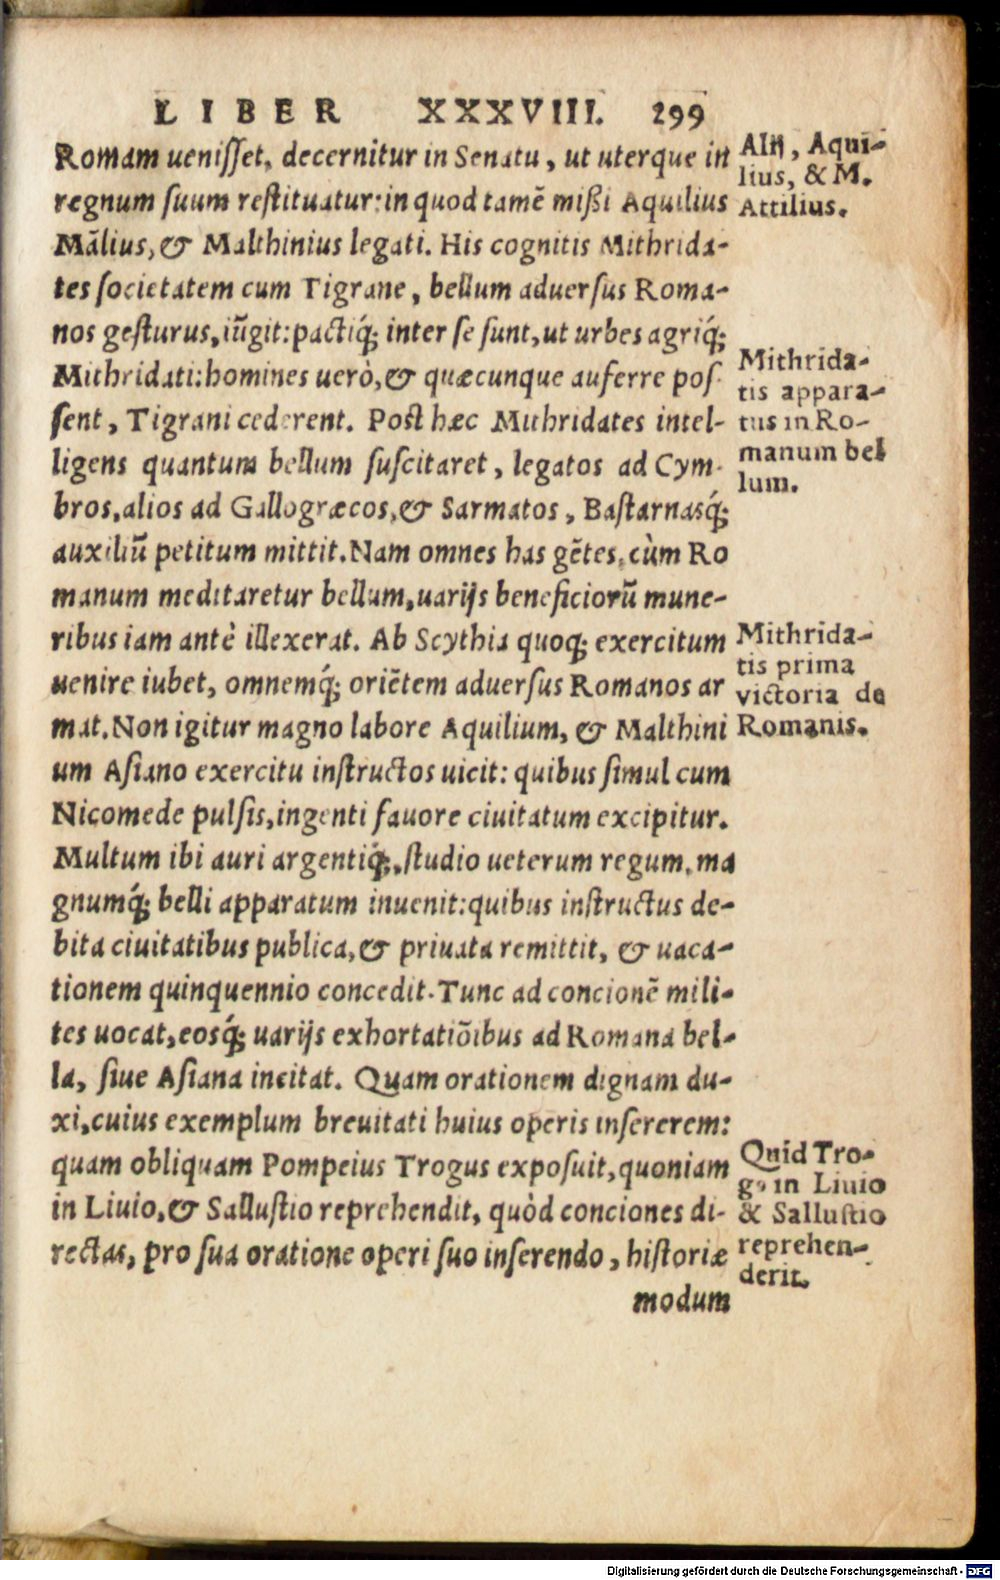 LIBER XXXVIII. 299
Romam uenisset, decernitur in Senatu, ut uterque in
regnum suum restituatur: in quod tamē mißi Aquilius
Mãlius, & Malthinius legati. His cognitis Mithrida-
tes societatem cum Tigrane, bellum aduersus Roma-
nos gesturus, iũgit: pactiq́; inter se sunt, ut urbes agriq́;
Mithridati: homines uerò, & quæcunque auferre pos
sent, Tigrani cederent. Post hæc Mithridates intel-
ligens quantum bellum suscitaret, legatos ad Cym-
bros, alios ad Gallogræcos, & Sarmatos, Bastarnasq́;
auxiliũ petitum mittit. Nam omnes has gētes, cùm Ro
manum meditaretur bellum, uarijs beneficiorũ mune-
ribus iam antè illexerat. Ab Scythia quoq; exercitum
uenire iubet, omnemq́; oriētem aduersus Romanos ar
mat. Non igitur magno labore Aquilium, & Malthini
um Asiano exercitu instructos uicit: quibus simul cum
Nicomede pulsis, ingenti fauore ciuitatum excipitur.
Multum ibi auri argentiq́;, studio ueterum regum, ma
gnumq́; belli apparatum inuenit: quibus instructus de-
bita ciuitatibus publica, & priuata remittit, & uaca-
tionem quinquennio concedit. Tunc ad concionē mili-
tes uocat, eosq́; uarijs exhortatiõibus ad Romana bel-
la, siue Asiana incitat. Quam orationem dignam du-
xi, cuius exemplum breuitati huius operis insererem:
quam obliquam Pompeius Trogus exposuit, quoniam
in Liuio, & Sallustio reprehendit, quòd conciones di-
rectas, pro sua oratione operi suo inserendo, historiæ
modum
Alij, Aqui-
lius, & M.
Attilius.
Mithrida-
tis appara-
tus in Ro-
manum bel
lum.
Mithrida-
tis prima
victoria de
Romanis.
Quid Tro-
g9 in Liuio
& Sallustio
reprehen-
derit.
Digitalisierung gefördert durch die Deutsche Forschungsgemeinschaft - DFG